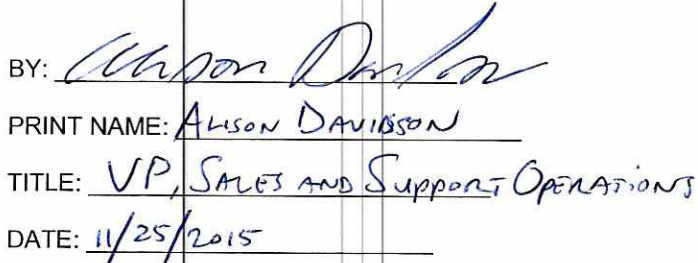 BY: Alison Davidson
PRINT NAME: ALISON DAVIDSON
TITLE: VP, SALES AND SUPPORT OPERATIONS
DATE: 11/25/2015